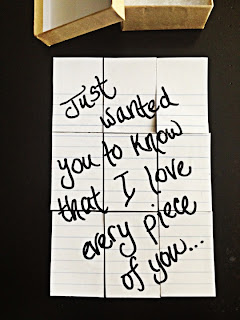 Just
wanted
you to know
that I love
every piece
of you...